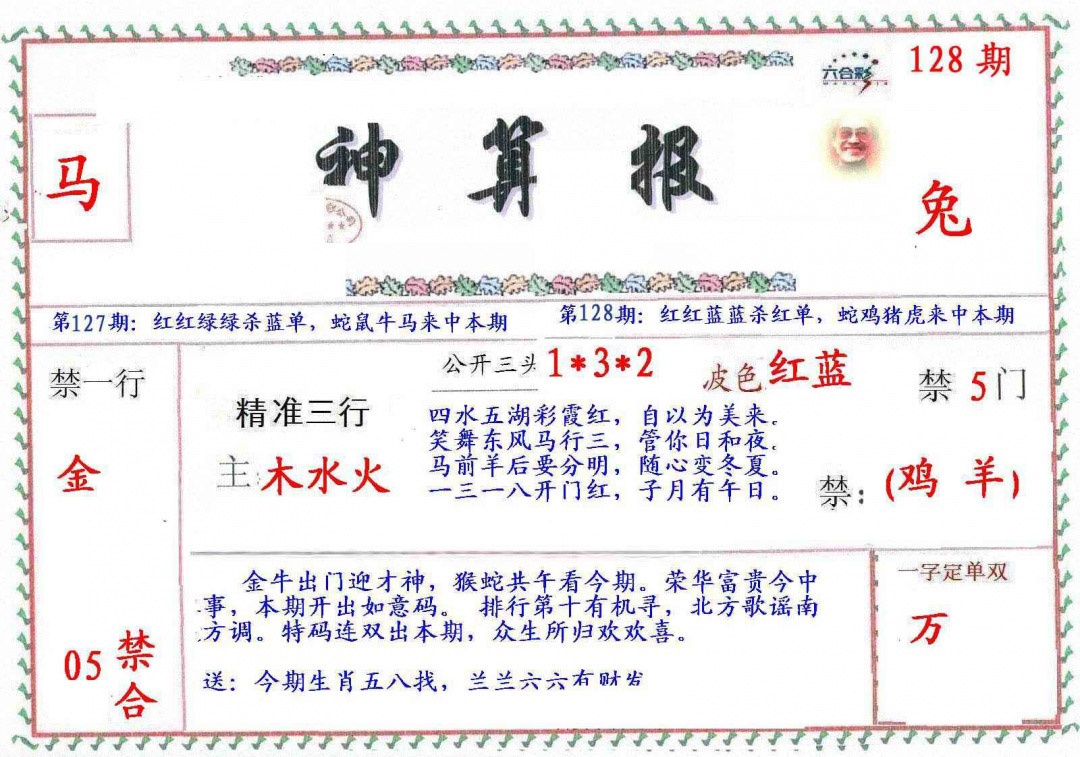 128 期
六合彩
马
神算报
兔
第127期：红红绿绿杀蓝单，蛇鼠牛马来中本期
第128期：红红蓝蓝杀红单，蛇鸡猪虎来中本期
禁一行
金
05 禁合
精准三行
主：木水火
公开三头 1*3*2
波色 红蓝
四水五湖彩霞红，自以为美来。
笑舞东风马行三，管你日和夜。
马前羊后要分明，随心变冬夏。
一三一八开门红，子月有午日。
禁 5 门
禁：(鸡 羊)
金牛出门迎才神，猴蛇共午看今期。荣华富贵今中
事，本期开出如意码。 排行第十有机寻，北方歌谣南
方调。特码连双出本期，众生所归欢欢喜。
送：今期生肖五八找，兰兰六六有财发
一字定单双
万